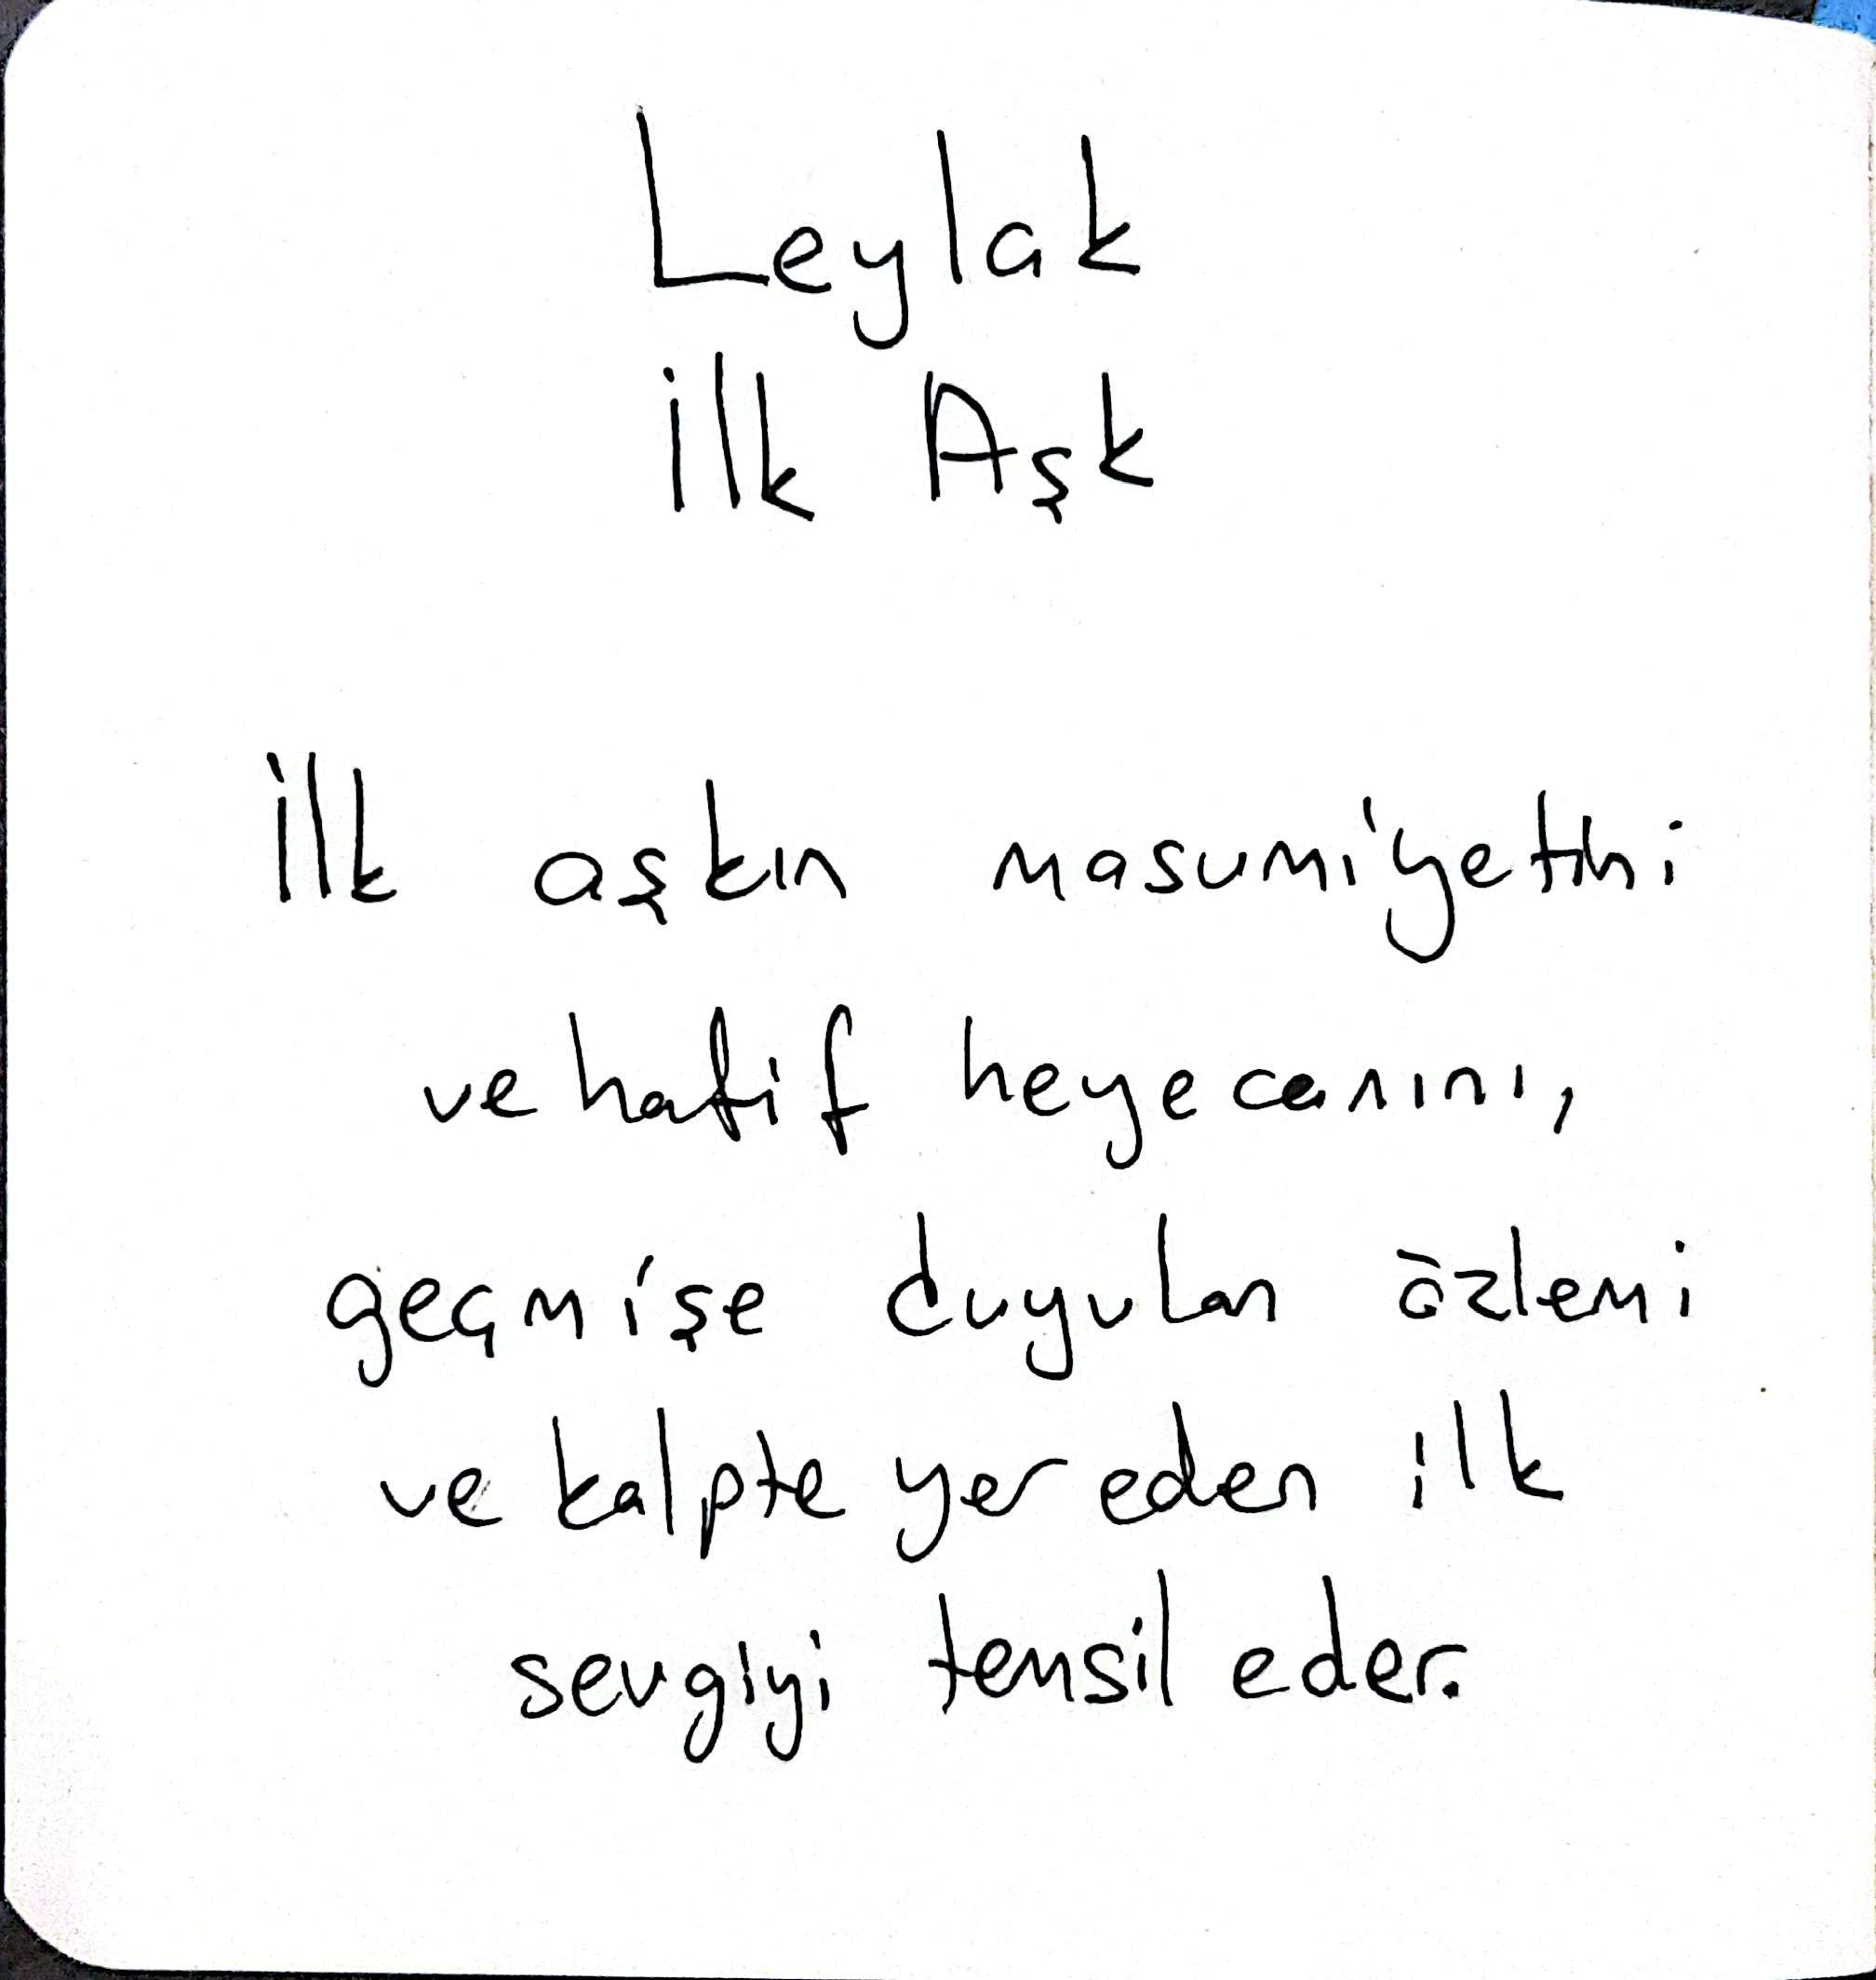 Leylak
İlk Aşk
İlk aşkın masumiyetini
ve hafif heyecanını,
geçmişe duyulan özlemi
ve kalpte yer eden ilk
sevgiyi temsil eder.